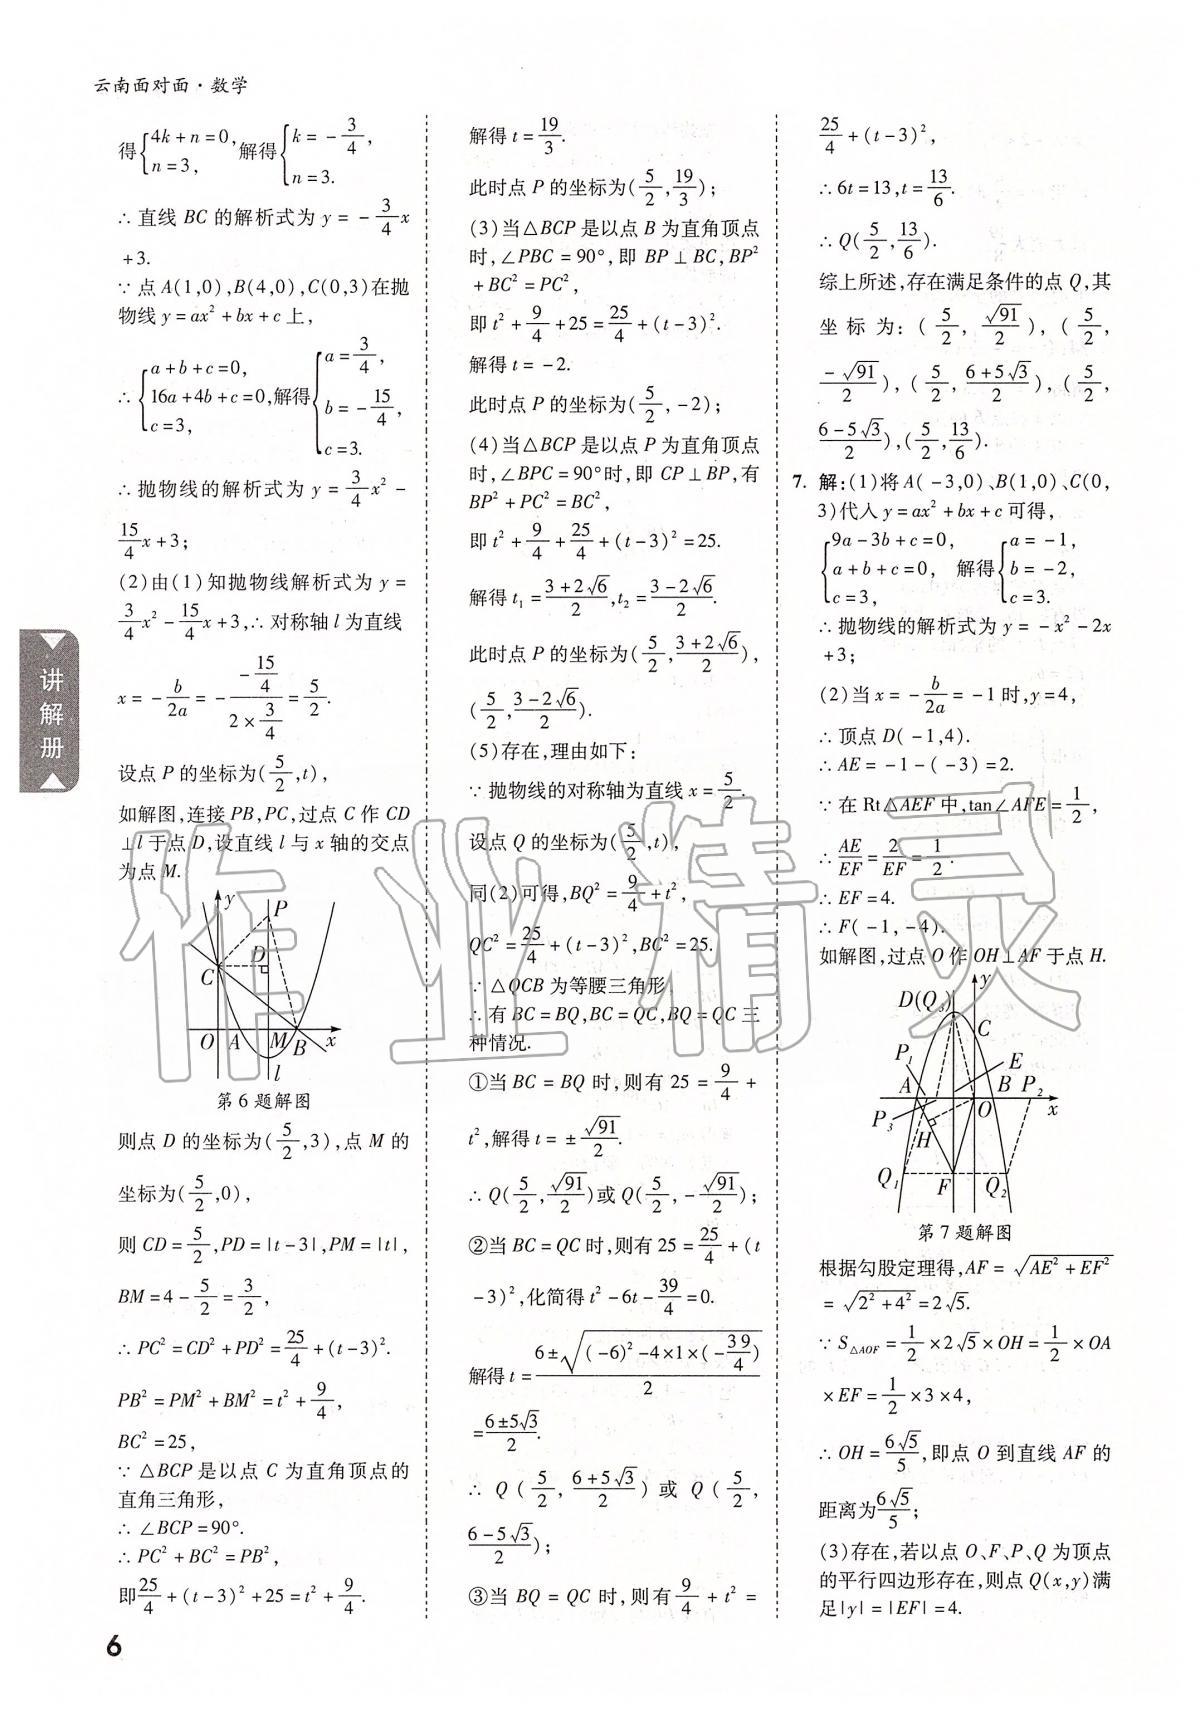 云南面对面·数学
得{4k+n=0, n=3, 解得{k=-3/4, n=3.
∴直线 BC 的解析式为 y=-3/4x
+3.
∵点 A(1,0),B(4,0),C(0,3)在抛
物线 y=ax²+bx+c 上,
∴{a+b+c=0, 16a+4b+c=0, c=3, 解得{a=3/4, b=-15/4, c=3.
∴抛物线的解析式为 y=3/4x²-
15/4x+3;
(2)由(1)知抛物线解析式为 y=
3/4x²-15/4x+3,∴对称轴 l 为直线
x=-b/2a=-(-15/4)/(2×3/4)=5/2.
设点 P 的坐标为(5/2,t),
如解图,连接 PB,PC,过点 C 作 CD
⊥l 于点 D,设直线 l 与 x 轴的交点
为点 M.
y
P
C
D
O
A
M
B
x
l
第 6 题解图
则点 D 的坐标为(5/2,3),点 M 的
坐标为(5/2,0),
则 CD=5/2,PD=|t-3|,PM=|t|,
BM=4-5/2=3/2,
∴PC²=CD²+PD²=25/4+(t-3)².
PB²=PM²+BM²=t²+9/4,
BC²=25,
∵△BCP 是以点 C 为直角顶点的
直角三角形,
∴∠BCP=90°.
∴PC²+BC²=PB²,
即25/4+(t-3)²+25=t²+9/4.
解得 t=19/3.
此时点 P 的坐标为(5/2,19/3);
(3)当△BCP 是以点 B 为直角顶点
时,∠PBC=90°,即 BP⊥BC,BP²
+BC²=PC²,
即 t²+9/4+25=25/4+(t-3)².
解得 t=-2.
此时点 P 的坐标为(5/2,-2);
(4)当△BCP 是以点 P 为直角顶点
时,∠BPC=90°时,即 CP⊥BP,有
BP²+PC²=BC²,
即 t²+9/4+25/4+(t-3)²=25.
解得 t₁=(3+2√6)/2,t₂=(3-2√6)/2.
此时点 P 的坐标为(5/2,(3+2√6)/2),
(5/2,(3-2√6)/2).
(5)存在,理由如下:
∵抛物线的对称轴为直线 x=5/2.
设点 Q 的坐标为(5/2,t),
同(2)可得,BQ²=9/4+t²,
QC²=25/4+(t-3)²,BC²=25.
∵△QCB 为等腰三角形,
∴有 BC=BQ,BC=QC,BQ=QC 三
种情况.
①当 BC=BQ 时,则有 25=9/4+
t²,解得 t=±√91/2.
∴Q(5/2,√91/2)或 Q(5/2,-√91/2);
②当 BC=QC 时,则有 25=25/4+(t
-3)²,化简得 t²-6t-39/4=0.
解得 t=(6±√((-6)²-4×1×(-39/4)))/2
=(6±5√3)/2.
∴ Q(5/2,(6+5√3)/2) 或 Q(5/2,
(6-5√3)/2);
③当 BQ=QC 时,则有9/4+t²=
25/4+(t-3)²,
∴6t=13,t=13/6.
∴Q(5/2,13/6).
综上所述,存在满足条件的点 Q,其
坐标为:(5/2,√91/2),(5/2,
-√91/2),(5/2,(6+5√3)/2),(5/2,
(6-5√3)/2),(5/2,13/6).
7. 解:(1)将 A(-3,0)、B(1,0)、C(0,
3)代入 y=ax²+bx+c 可得,
{9a-3b+c=0, a+b+c=0, c=3, 解得{a=-1, b=-2, c=3.
∴抛物线的解析式为 y=-x²-2x
+3;
(2)当 x=-b/2a=-1 时,y=4,
∴顶点 D(-1,4).
∴AE=-1-(-3)=2.
∵在 Rt△AEF 中,tan∠AFE=1/2,
∴AE/EF=2/EF=1/2.
∴EF=4.
∴F(-1,-4).
如解图,过点 O 作 OH⊥AF 于点 H.
y
D(Q₃)
C
P₁
E
A
B
P₂
O
x
P₃
H
Q₁
F
Q₂
第 7 题解图
根据勾股定理得,AF=√(AE²+EF²)
=√(2²+4²)=2√5.
∵S△AOF=1/2×2√5×OH=1/2×OA
×EF=1/2×3×4,
∴OH=6√5/5,即点 O 到直线 AF 的
距离为6√5/5;
(3)存在,若以点 O、F、P、Q 为顶点
的平行四边形存在,则点 Q(x,y)满
足|y|=|EF|=4.
讲解册
6
作业精灵